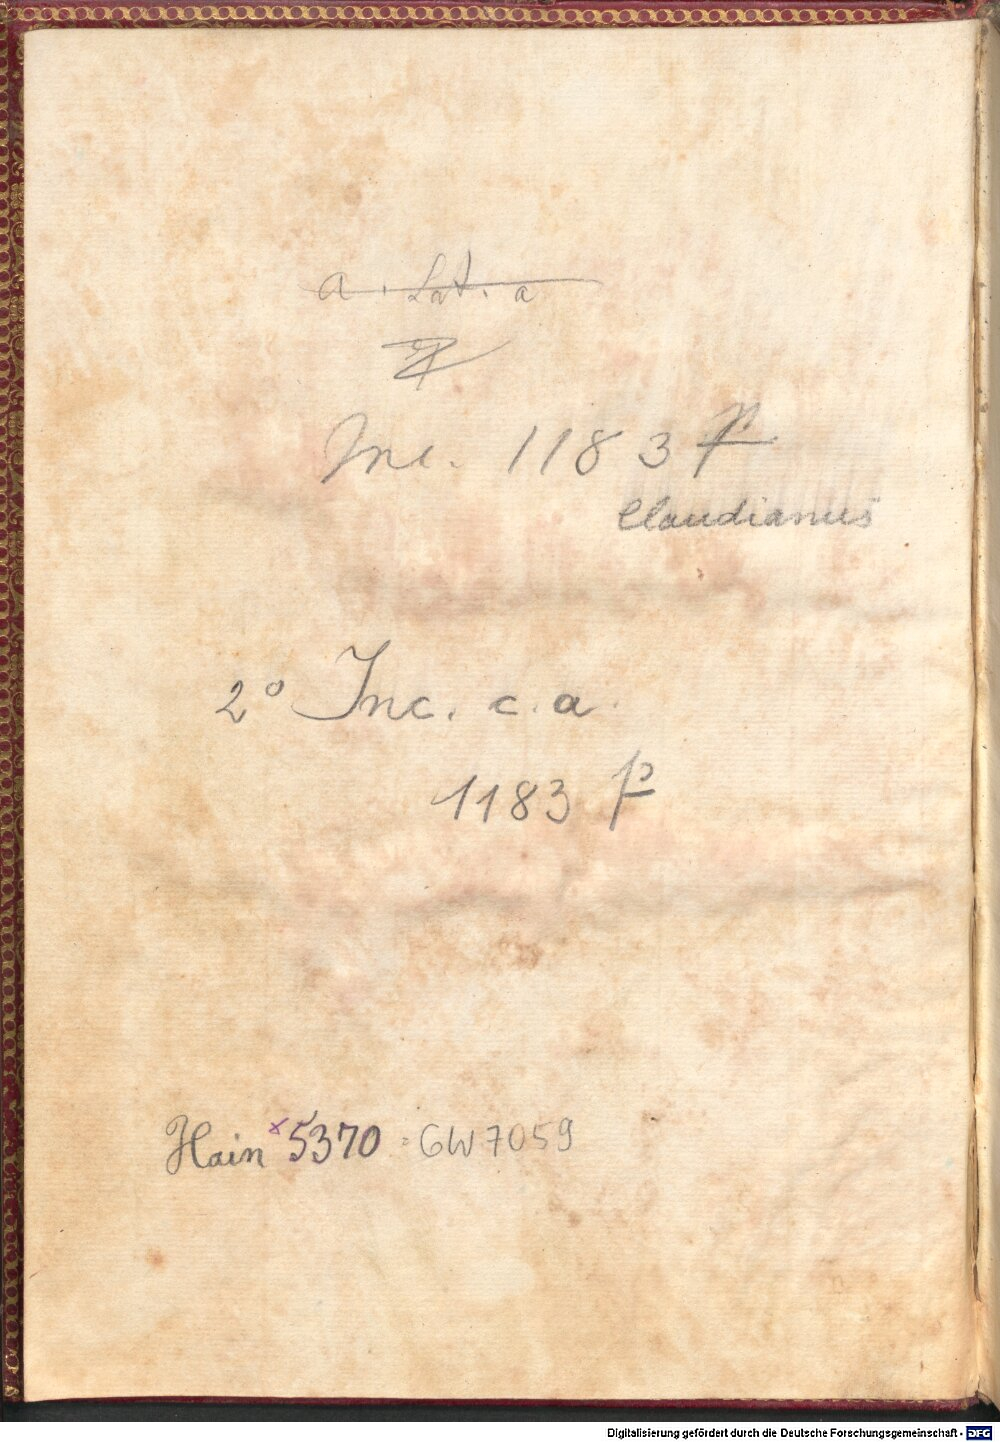 a. Lat. a
Inc. 1183 p
Claudianus
2° Inc. c. a.
1183 p
Hain x 5370 = GW 7059
Digitalisierung gefördert durch die Deutsche Forschungsgemeinschaft - DFG